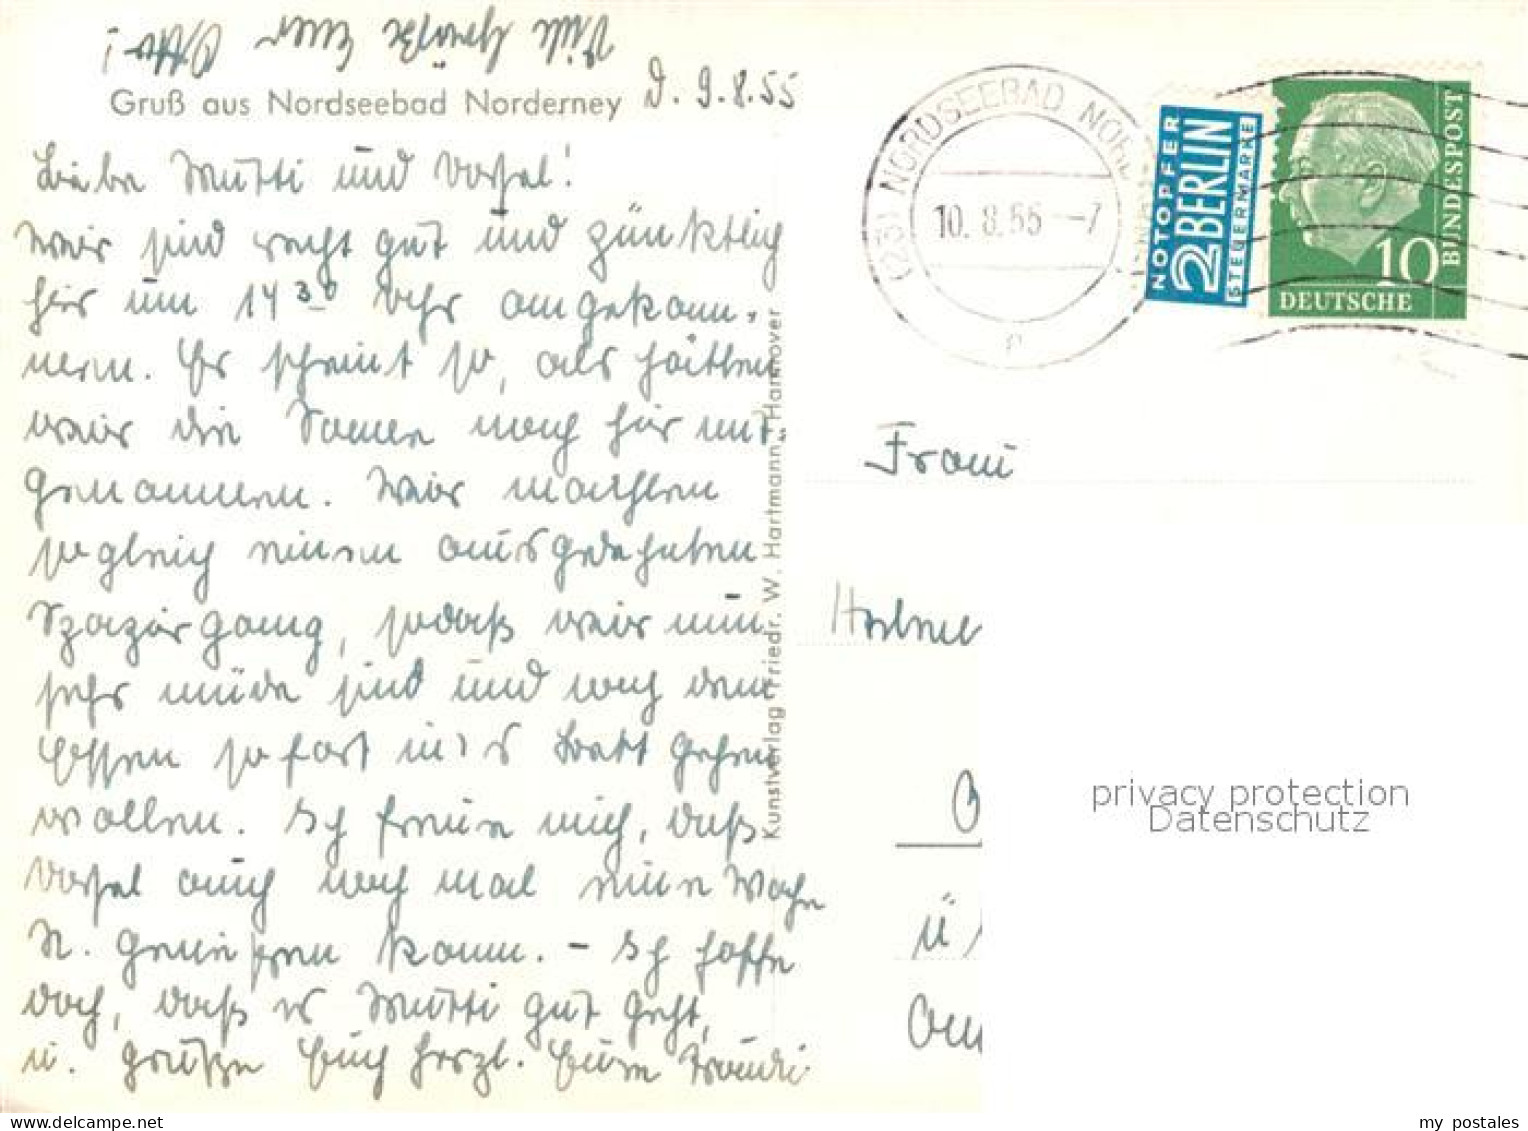 Viele Grüße Euer Otto!
Gruß aus Nordseebad Norderney
D. 9.8.55
Liebe Mutti und Vossel!
Wir sind recht gut und pünktlich
hier um 14 30 Uhr angekom-
men. Es scheint so, als hätten
wir die Sonne noch hier mit-
genommen. Wir machten
sogleich einen ausgedehnten
Spaziergang, sodaß wir nun
sehr müde sind und nach dem
Essen sofort in's Bett gehen
wollen. Ich freue mich, daß
Vossel auch noch mal eine Woche
N. genießen kann. - Ich hoffe
doch, daß es Mutti gut geht,
u. grüße Euch herzl. Eure Traudi
Kunstverlag Friedr. W. Hartmann, Hannover
(23) NORDSEEBAD NOR
10.8.55 -7
NOTOPFER
2 BERLIN
STEUERMARKE
10
DEUTSCHE
BUNDESPOST
Frau
ü
privacy protection
Datenschutz
www.delcampe.net
my_postales